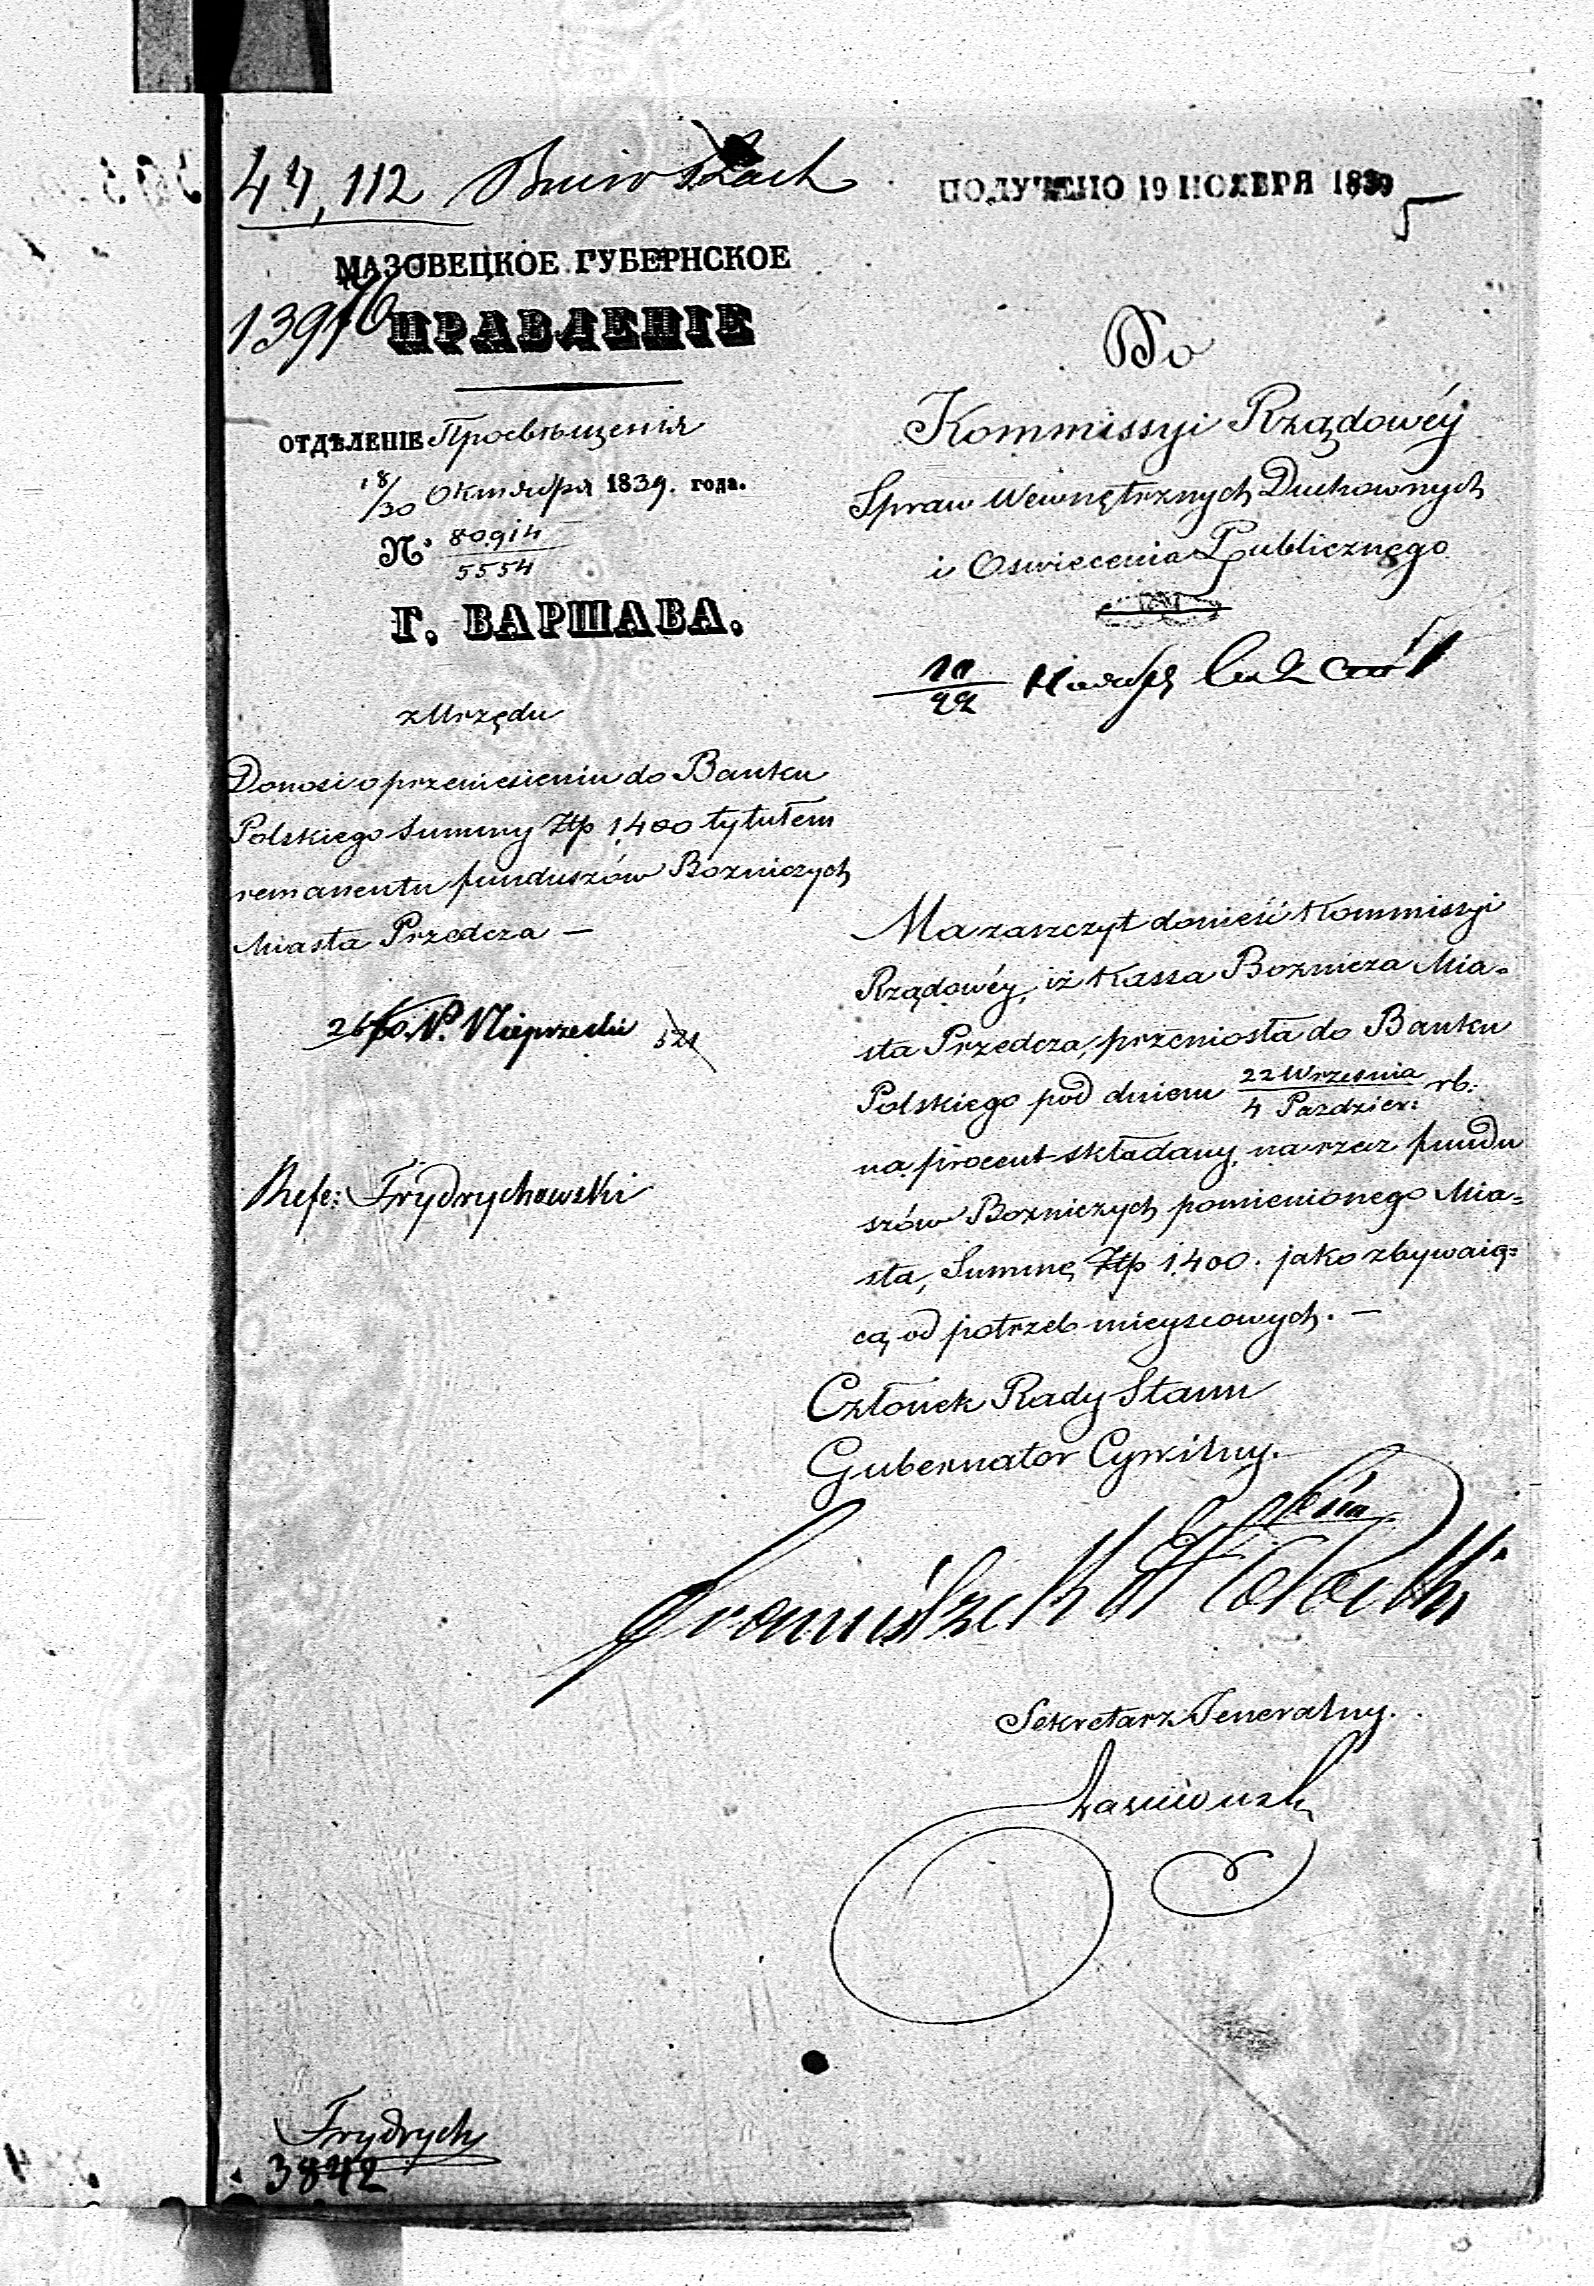 44,112
ПОЛУЧЕНО 19 НОЯБРЯ 1839
МАЗОВЕЦКОЕ ГУБЕРНСКОЕ
13976
ПРАВЛЕНІЕ
ОТДѢЛЕНІЕ Просвѣщенія
18/30 Октября 1839. года.
№ 80914/5554
Г. ВАРШАВА.
z Urzędu
Donosi o przeniesieniu do Banku
Polskiego Summy Złp 1,400 tytułem
remanentu funduszów Bozniczych
Miasta Przedcza —
521
Refe: Frydrychowski
Do
Kommissyi Rządowéy
Spraw Wewnętrznych Duchownych
i Oswiecenia Publicznego
Ma zaszczyt donieść Kommissyi
Rządowéy, iż Kassa Boznicza Mia=
sta Przedcza, przeniosła do Banku
Polskiego pod dniem 22 Września/4 Pazdzier: rb:
na procent składany, na rzecz fundu
szów Bozniczych pomienionego Mia=
sta, Summę Złp 1,400. jako zbywaią=
cą od potrzeb mieyscowych. —
Członek Rady Stanu
Gubernator Cywilny.
Franciszek
Sekretarz Jeneralny.
Frydrych
3842